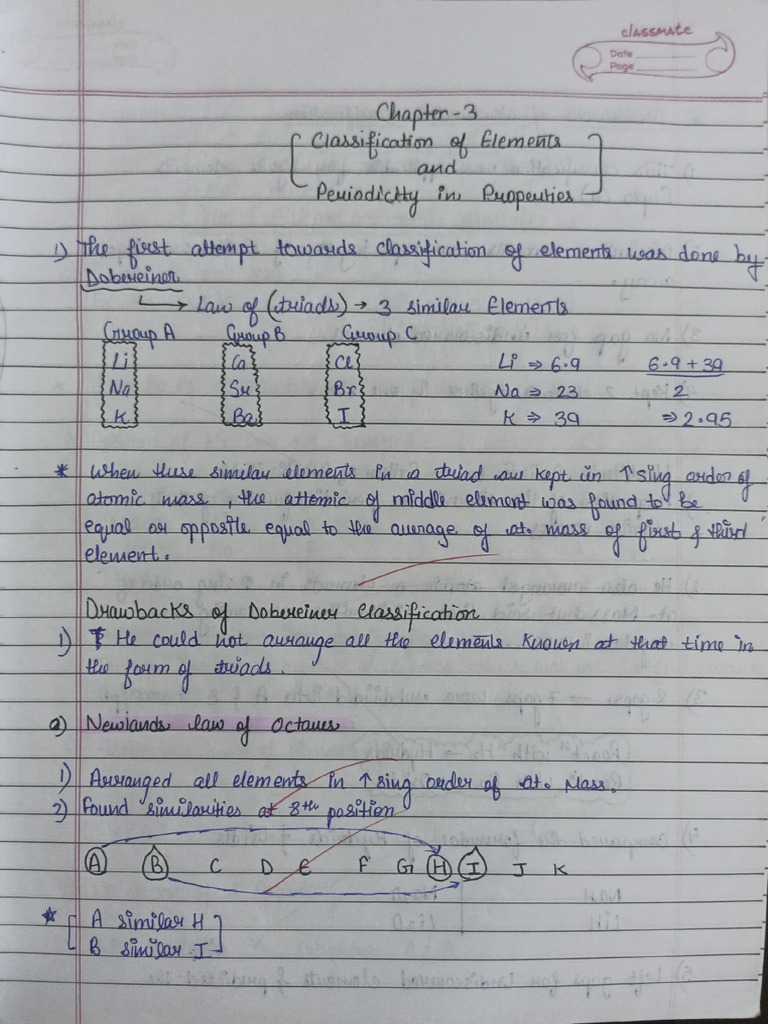 classmate
Date
Page
Chapter-3
Classification of Elements
and
Periodicity in Properties
1) The first attempt towards classification of elements was done by
Dobereiner
Law of (triads) → 3 similar Elements
Group A Group B Group C
Li Ca Cl Li ⇒ 6.9 6.9 + 39
Na Sr Br Na ⇒ 23 2
K Ba I K ⇒ 39 ⇒ 2.95
* When these similar elements in a triad are kept in ↑sing order of
atomic mass, the attemic of middle element was found to be
equal or opposite equal to the average of at. mass of first & third
element.
Drawbacks of Dobereiner Classification
1) He could not arrange all the elements known at that time in
the form of triads.
2) Newlands law of Octaves
1) Arranged all elements in ↑sing order of at. Mass.
2) Found similarities at 8th position
A B C D E F G H I J K
* [ A similar H ]
[ B similar I ]